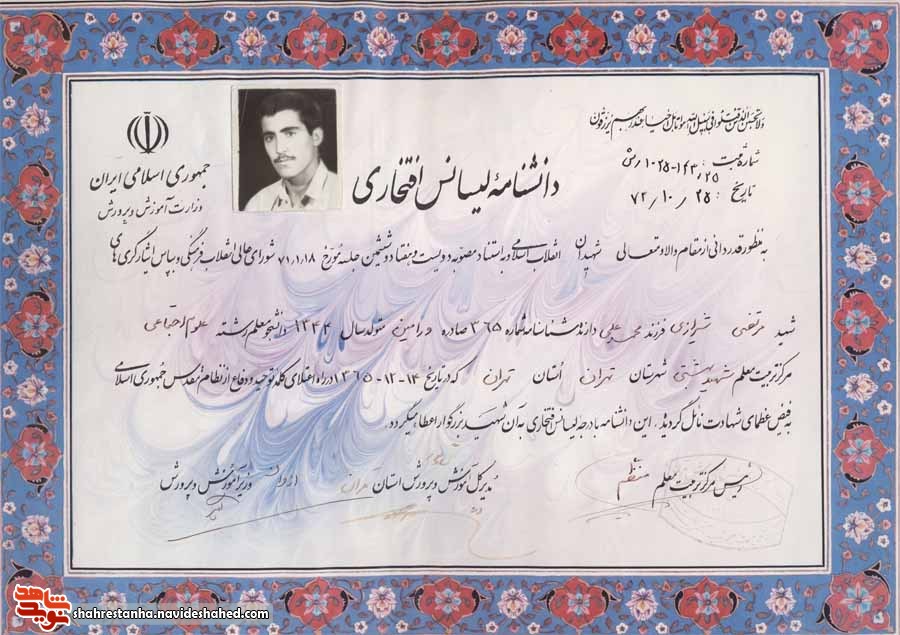 ولا تحسبن الذین قتلوا فی سبیل الله امواتا بل احیاء عند ربهم یرزقون
جمهوری اسلامی ایران
وزارت آموزش و پرورش
شماره ثبت :
تاریخ : ۷۲/۱۰/۲۵
دانشنامهٔ لیسانس افتخاری
به منظور قدردانی از مقام والا و متعالی شهیدان انقلاب اسلامی و به استناد مصوبه دویست و هفتاد و ششمین جلسه مورخ ۷۱/۱/۱۸ شورای عالی انقلاب فرهنگی و بپاس ایثارگری های
شهید مرتضی شیرازی فرزند محمدعلی دارنده شناسنامه شماره ۳۶۵ صادره ورامین متولد سال ۱۳۴۴ دانشجو معلم رشته علوم اجتماعی
مرکز تربیت معلم شهید بهشتی شهرستان تهران استان تهران که در تاریخ ۱۴-۱۲-۱۳۶۵ در راه اعتلای کلمه توحید و دفاع از نظام مقدس جمهوری اسلامی
به فیض عظمای شهادت نائل گردیده . این دانشنامه با درجه لیسانس افتخاری به آن شهید بزرگوار اعطا میگردد.
رئیس مرکز تربیت معلم
مدیر کل آموزش و پرورش استان تهران
وزیر آموزش و پرورش
نوید شاهد
shahrestanha.navideshahed.com